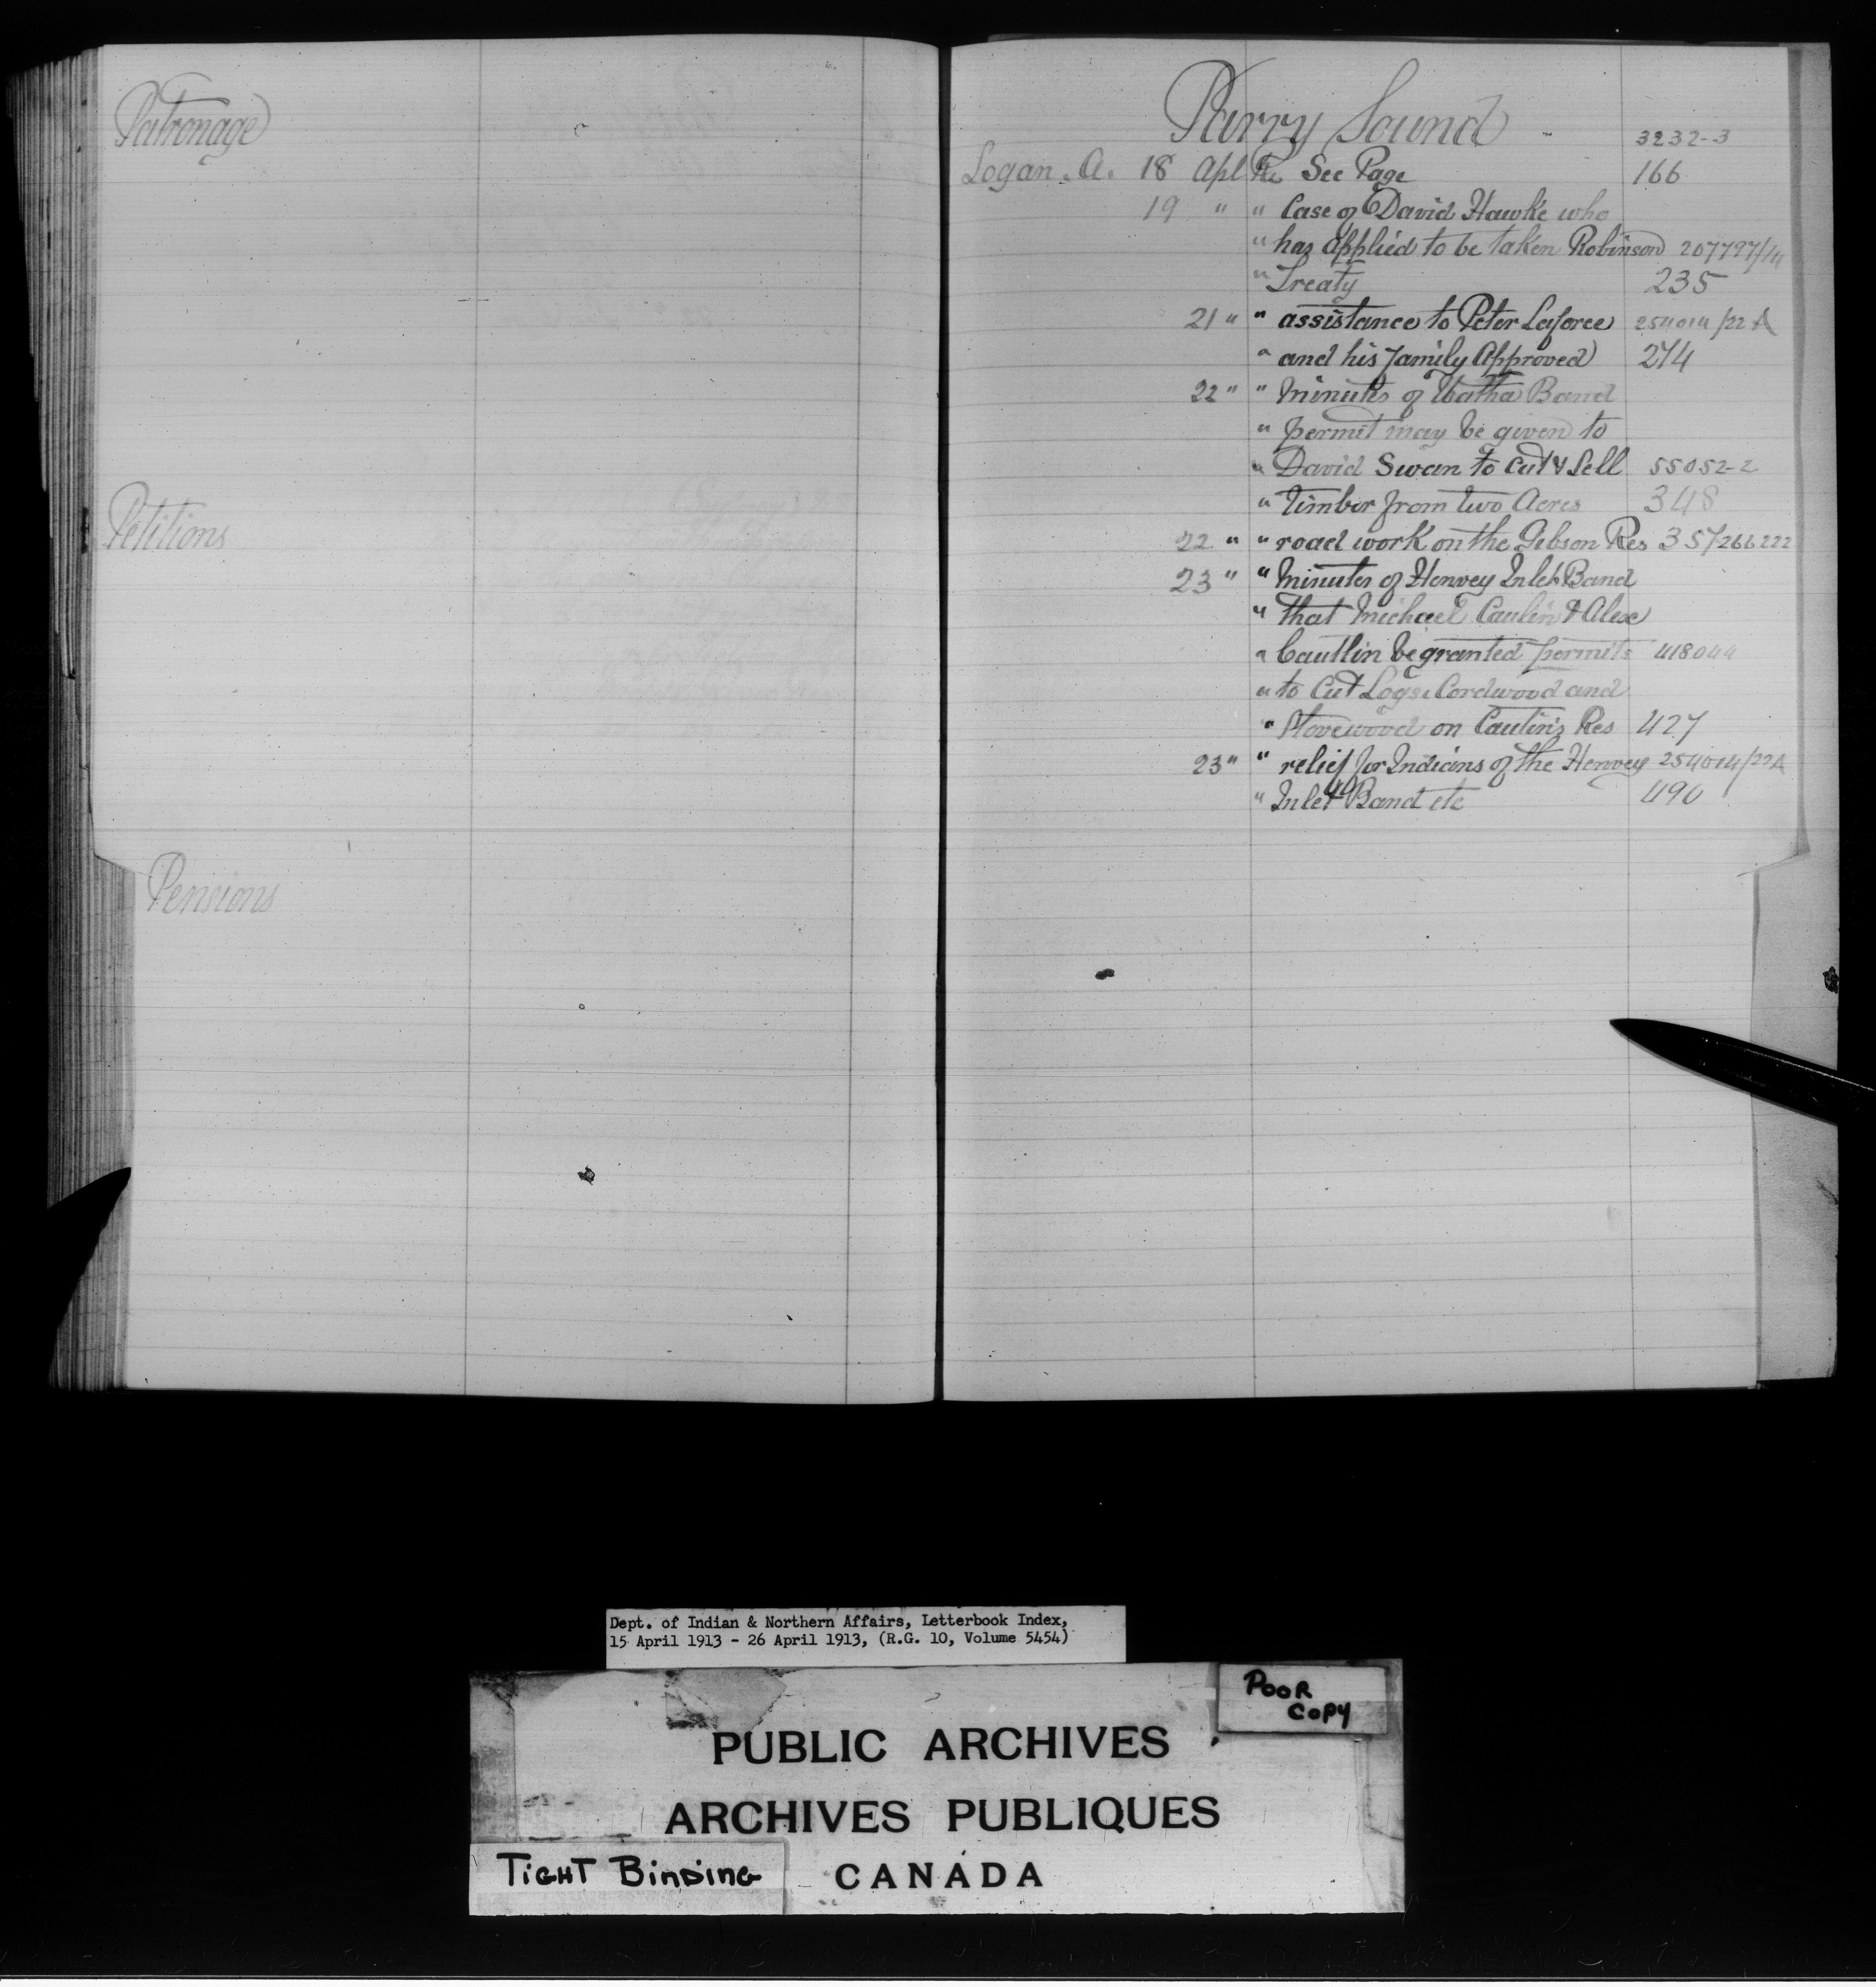 Patronage
Petitions
Pensions
Parry Sound 3232-3
Logan. A. 18 Apl Re See Page 166
19 " " Case of David Hawke who
" has applied to be taken Robinson 207797/14
" Treaty 235
21 " " assistance to Peter Laforce 254014/22A
" and his family Approved 274
22 " " Minutes of Watha Band
" permit may be given to
" David Swan to Cut & Sell 55052-2
" Timber from two Acres 348
22 " " road work on the Gibson Res 357/266222
23 " " Minutes of Henvey Inlet Band
" that Michael Caulin & Alex
" Cautlin be granted permits 418044
" to Cut Logs, Cordwood and
" Stovewood on Caulin's Res 427
23 " " relief for Indians of the Henvey 254014/22A
" Inlet Band etc 490
Dept. of Indian & Northern Affairs, Letterbook Index,
15 April 1913 - 26 April 1913, (R.G. 10, Volume 5454)
POOR
COPY
PUBLIC ARCHIVES
ARCHIVES PUBLIQUES
TIGHT BINDING
CANADA